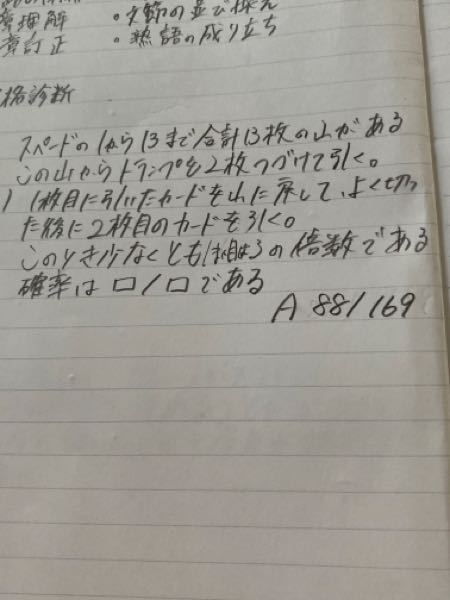 章理解 ・文節の並び換え
章訂正 ・熟語の成り立ち
格診断
スペードの1から13まで合計13枚の山がある
この山からトランプを2枚つづけて引く。
) 1枚目に引いたカードを山に戻して、よく切っ
た後に2枚目のカードを引く。
このとき少なくとも1枚目は3の倍数である
確率は□/□である
A 88/169